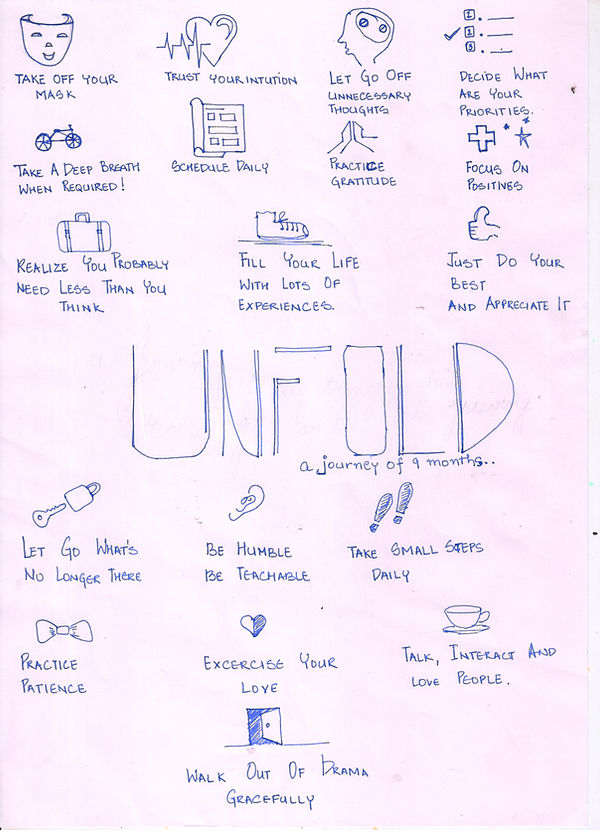 TAKE OFF YOUR
MASK
TRUST YOUR INTUTION
LET GO OFF
UNNECESSARY
THOUGHTS
1.
1.
3.
DECIDE WHAT
ARE YOUR
PRIORITIES.
TAKE A DEEP BREATH
WHEN REQUIRED!
SCHEDULE DAILY
PRACTICE
GRATITUDE
FOCUS ON
POSITIVES
REALIZE YOU PROBABLY
NEED LESS THAN YOU
THINK
FILL YOUR LIFE
WITH LOTS OF
EXPERIENCES.
JUST DO YOUR
BEST
AND APPRECIATE IT
UNFOLD
a journey of 9 months..
LET GO WHAT'S
NO LONGER THERE
BE HUMBLE
BE TEACHABLE
TAKE SMALL STEPS
DAILY
PRACTICE
PATIENCE
EXCERCISE YOUR
LOVE
TALK, INTERACT AND
LOVE PEOPLE.
WALK OUT OF DRAMA
GRACEFULLY